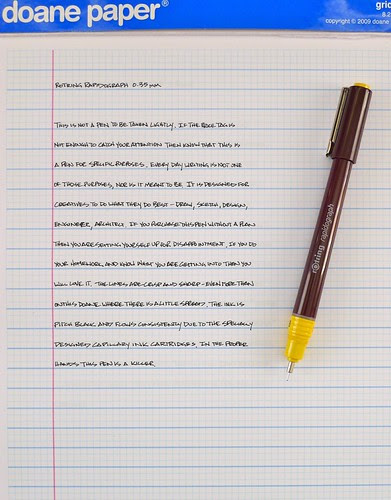 doane paper®
grid
8.2
copyright © 2009 doane
ROTRING RAPIDOGRAPH 0.35 mm
THIS IS NOT A PEN TO BE TAKEN LIGHTLY. IF THE PRICE TAG IS
NOT ENOUGH TO CATCH YOUR ATTENTION THEN KNOW THAT THIS IS
A PEN FOR SPECIFIC PURPOSES. EVERY DAY WRITING IS NOT ONE
OF THOSE PURPOSES, NOR IS IT MEANT TO BE. IT IS DESIGNED FOR
CREATIVES TO DO WHAT THEY DO BEST - DRAW, SKETCH, DESIGN,
ENGINEER, ARCHITECT. IF YOU PURCHASE THIS PEN WITHOUT A PLAN
THEN YOU ARE SETTING YOURSELF UP FOR DISAPPOINTMENT. IF YOU DO
YOUR HOMEWORK, AND KNOW WHAT YOU ARE GETTING INTO THAN YOU
WILL LOVE IT. THE LINES ARE CRISP AND SHARP - EVEN MORE THAN
ON THIS DOANE WHERE THERE IS A LITTLE SPREAD. THE INK IS
PITCH BLACK AND FLOWS CONSISTENTLY DUE TO THE SPECIALLY
DESIGNED CAPILLARY INK CARTRIDGES. IN THE PROPER
HANDS THIS PEN IS A KILLER.
rotring rapidograph